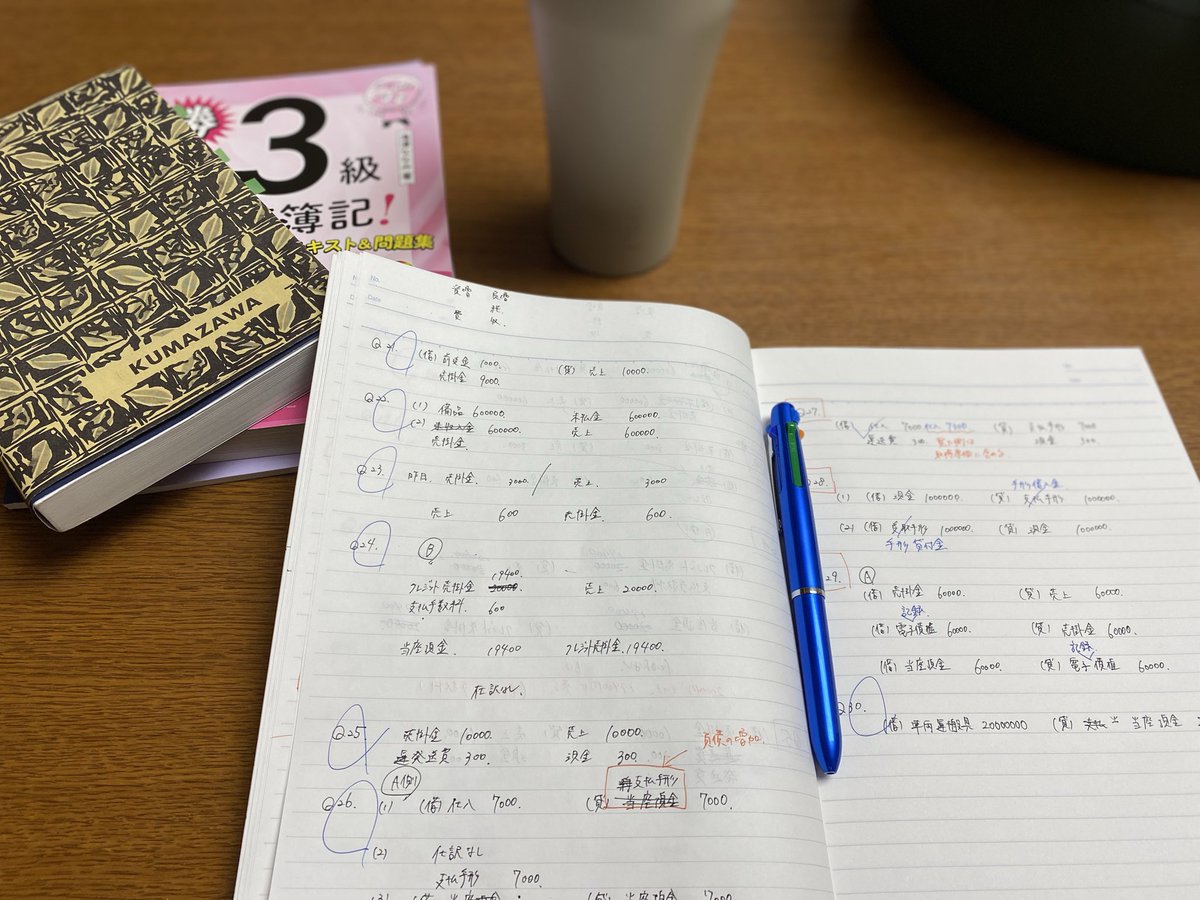 KUMAZAWA
3級
簿記!
キスト&問題集
No.
Date
資増 負増
費 収
Q21. (借) 前受金 1000. (貸) 売上 10000.
売掛金 9000.
Q22. (1) 備品 600000. 未払金 600000.
(2) 未収入金 600000. 売上 600000.
売掛金
Q23. 昨日. 売掛金 3000 / 売上 3000
売上 600 売掛金 600.
Q24. B
19400.
クレジット売掛金 20000. 売上 20000.
支払手数料. 600
当座預金. 19400 クレジット売掛金. 19400.
仕訳なし.
Q25 売掛金 10000. 売上 10000.
発送費 300. 現金 300. 負債の増加.
A側
Q26. (1) (借) 仕入 7000. (貸) 当座預金 7000.
支払手形
(2) 仕訳なし
支払手形 7000.
(3) (貸) 当座預金 7000
Q27.
(借) 仕入 7000 仕入 7300. (貸) 支払手形 7000
運送費 300. 現金 300.
28.
手形借入金
(1) (借) 現金 1000000. (貸) 支払手形 1000000.
(2) (借) 受取手形 1000000. (貸) 現金 1000000.
手形貸付金
29. A
(借) 売掛金 60000. (貸) 売上 60000.
記録
(借) 電子債権 60000. (貸) 売掛金 60000.
記録
(借) 当座預金 60000. (貸) 電子債権 60000.
Q30.
(借) 車両運搬具 20000000 (貸) 未払 当 当座預金